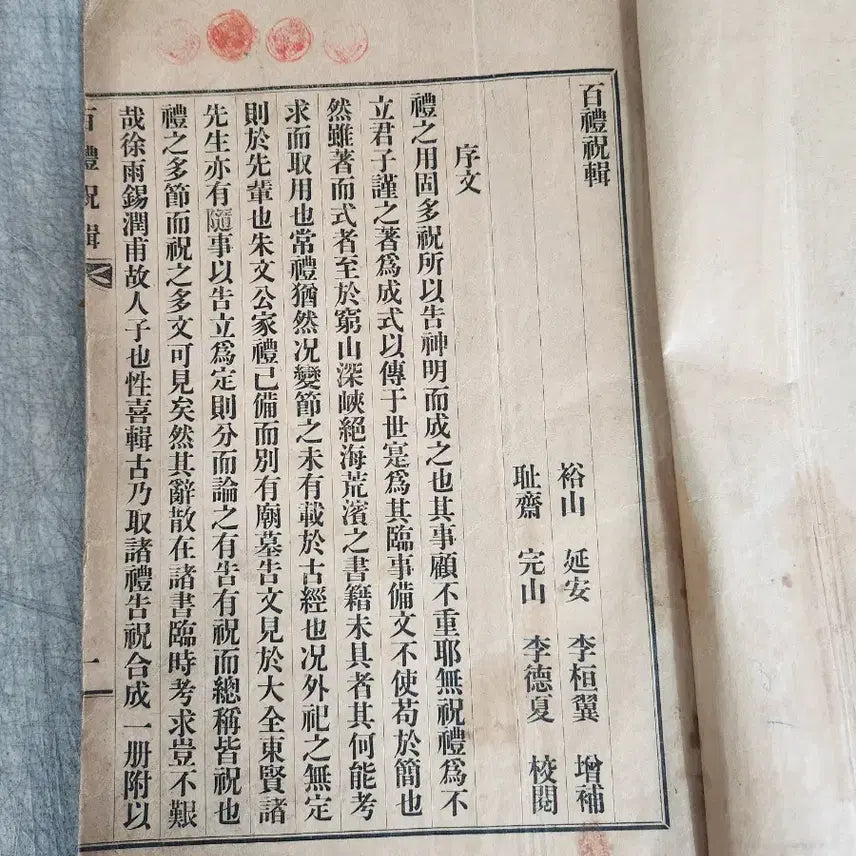 百禮祝輯
裕山 延安 李桓翼 增補
耻齋 完山 李德夏 校閱
序文
禮之用固多祝所以告神明而成之也其事顧不重耶無祝禮爲不
立君子謹之著爲成式以傳于世寔爲其臨事備文不使苟於簡也
然雖著而式者至於窮山深峽絕海荒濱之書籍未具者其何能考
求而取用也常禮猶然况變節之未有載於古經也况外祀之無定
則於先輩也朱文公家禮已備而別有廟墓告文見於大全東賢諸
先生亦有隨事以告立爲定則分而論之有告有祝而總稱皆祝也
禮之多節而祝之多文可見矣然其辭散在諸書臨時考求豈不艱
哉徐雨錫潤甫故人子也性喜輯古乃取諸禮告祝合成一册附以
百禮祝輯
一